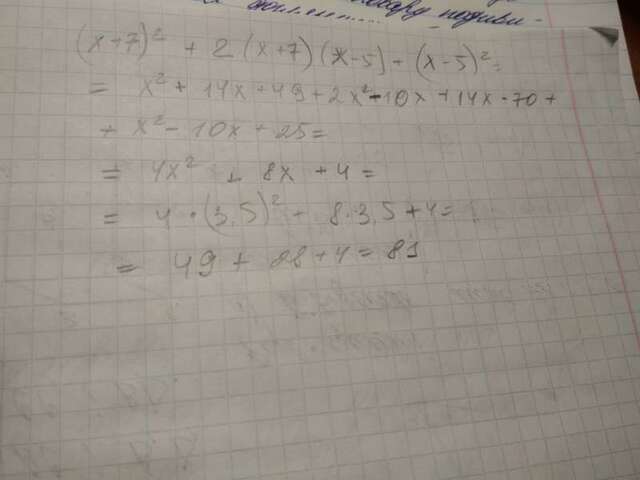 подиви-
(x+7)² + 2(x+7)(x-5)+(x-5)²=
= x² + 14x+49+2x²-10x+14x-70+
+ x² - 10x + 25 =
= 4x² + 8x + 4 =
= 4 · (3,5)² + 8·3,5+4=
= 49 + 28 + 4 = 81